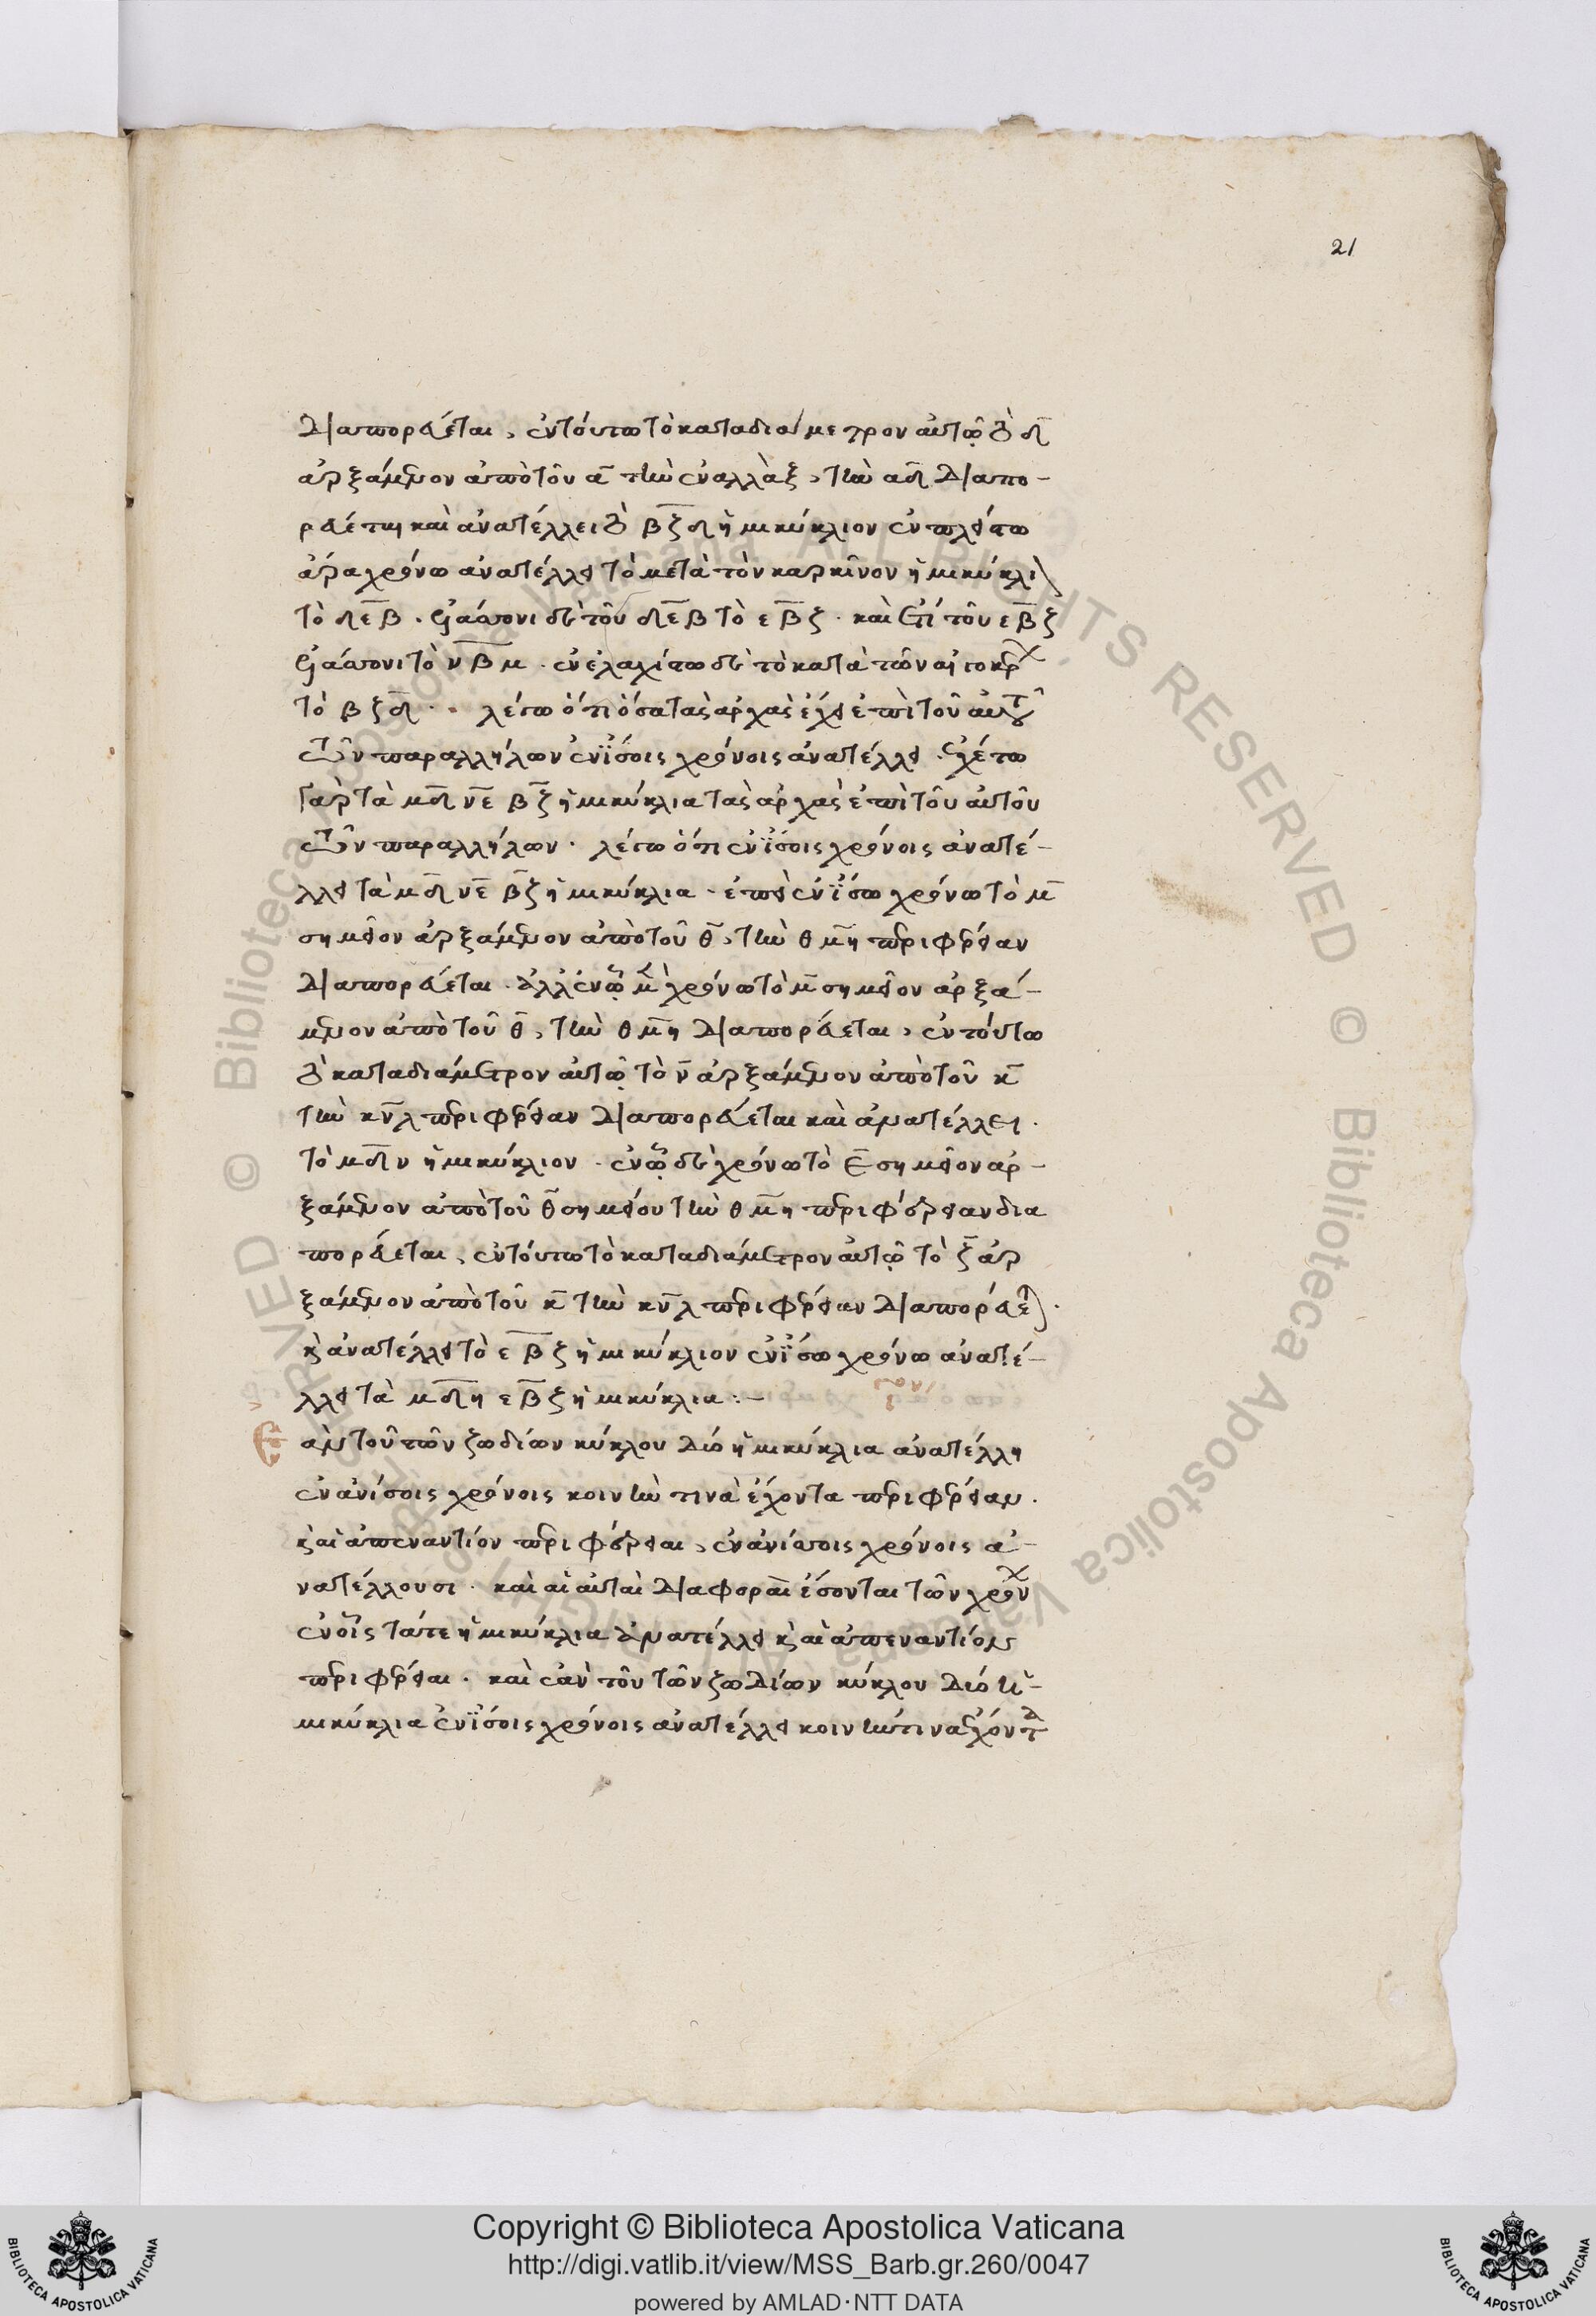 21
διαπορεύεται, ἐν τούτω τὸ κατα διάμετρον αὐτῷ τὸ δ̅
ἀρξάμενον ἀπὸ τοῦ α̅ τὴν ἐναλλὰξ, τὴν αδ διαπο-
ρεύεται καὶ ἀνατέλλει τὸ β̅ζ̅δ ἡμικύκλιον ἐν πλείστω
ἄρα χρόνω ἀνατέλλει τὸ μετὰ τὸν καρκῖνον ἡμικύκλι
τὸ δε̅β. ἐλάσσονι δὲ τοῦ δε̅β τὸ εβ̅ζ. καὶ ἔτι τοῦ εβ̅ζ
ἐλάσσονι τὸ νβ̅μ. ἐν ἐλαχίστω δὲ τὸ κατὰ τὸν αἰγοκρ
τὸ βζ̅δ. λέγω ὅτι ὅσα τὰς ἀρχὰς ἔχει ἐπὶ τοῦ αὐτοῦ
τῶν παραλλήλων ἐν ἴσοις χρόνοις ἀνατέλλει. ἐχέτω
γὰρ τὰ μδ̅ νε̅ β̅ζ ἡμικύκλια τὰς ἀρχὰς ἐπὶ τοῦ αὐτοῦ
τῶν παραλλήλων. λέγω ὅτι ἐν ἴσοις χρόνοις ἀνατέ-
λλει τὰ μδ̅ νε̅ β̅ζ ἡμικύκλια. ἐπεὶ ἐν ἴσω χρόνω τὸ μ̅
σημεῖον ἀρξάμενον ἀπὸ τοῦ θ̅, τὴν θμ̅η περιφέρειαν
διαπορεύεται. ἀλλ' ἐν ᾧ μὲν χρόνω τὸ μ̅ σημεῖον ἀρξά-
μενον ἀπὸ τοῦ θ̅, τὴν θμ̅η διαπορεύεται, ἐν τούτω
τὸ κατα διάμετρον αὐτῷ τὸ ν̅ ἀρξάμενον ἀπὸ τοῦ κ̅
τὴν κν̅λ περιφέρειαν διαπορεύεται καὶ ἀνατέλλει.
τὸ μδ̅ν ἡμικύκλιον. ἐν ᾧ δὲ χρόνω τὸ ε̅ σημεῖον ἀρ-
ξάμενον ἀπὸ τοῦ θ̅ σημείου τὴν θμ̅η περιφέρειαν δια
πορεύεται, ἐν τούτω τὸ κατα διάμετρον αὐτῷ τὸ ζ̅ ἀρ
ξάμενον ἀπὸ τοῦ κ̅ τὴν κν̅λ περιφέρειαν διαπορεύεται.
καὶ ἀνατέλλει τὸ εβ̅ζ ἡμικύκλιον ἐν ἴσω χρόνω ἀνατέ-
λλει τὰ μδ̅η εβ̅ζ ἡμικύκλια :-
ἐὰν τοῦ τῶν ζωδίων κύκλου δύο ἡμικύκλια ἀνατέλλη
ἐν ἀνίσοις χρόνοις κοινὴν τινὰ ἔχοντα περιφέρειαν.
καὶ αἱ ἀπεναντίον περιφέρειαι, ἐν ἀνίσοις χρόνοις ἀ-
νατέλλουσι. καὶ αἱ αὐταὶ διαφοραὶ ἔσονται τῶν χρόν
ἐν οἷς τά τε ἡμικύκλια ἀνατέλλει καὶ αἱ ἀπεναντίον
περιφέρειαι. καὶ ἐὰν τοῦ τῶν ζωδίων κύκλου δύο ἡ-
μικύκλια ἐν ἴσοις χρόνοις ἀνατέλλει κοινήν τινα ἔχοντα
Copyright © Biblioteca Apostolica Vaticana
http://digi.vatlib.it/view/MSS_Barb.gr.260/0047
powered by AMLAD·NTT DATA